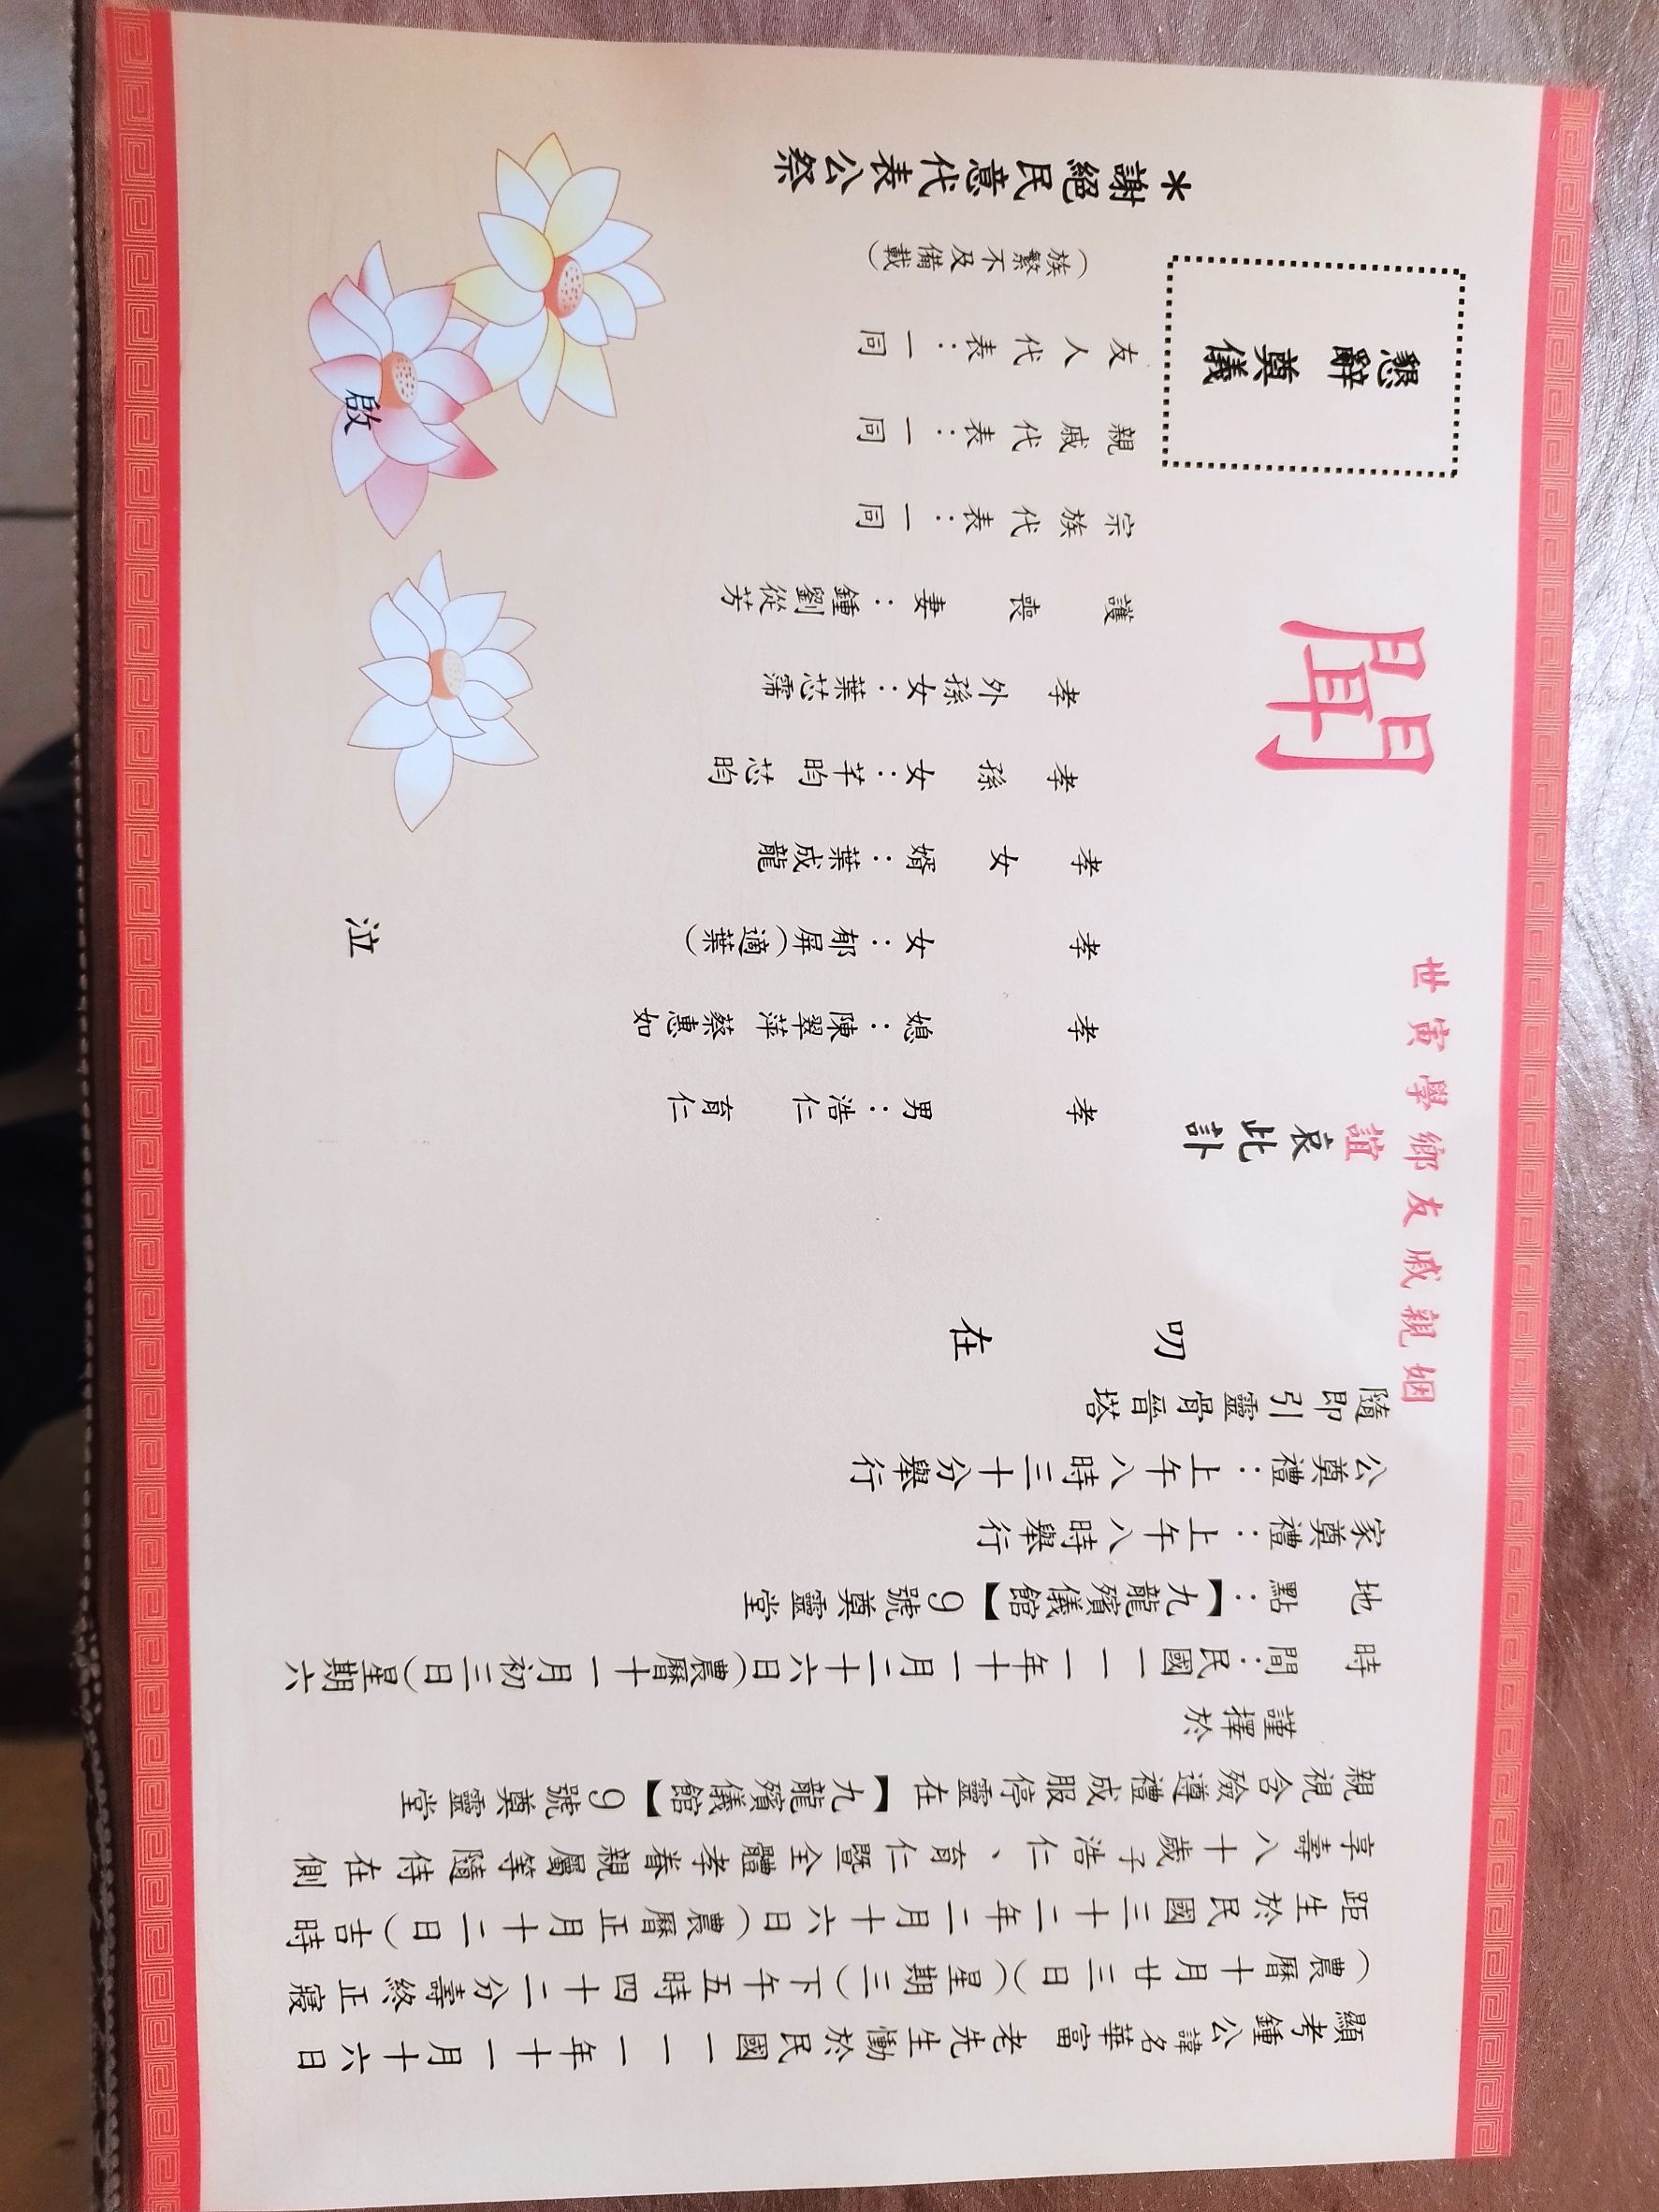 顯考鍾公諱名華富老先生慟於民國一一一年十一月十六日
（農曆十月廿三日）（星期三）下午五時四十二分壽終正寢
距生於民國三十二年二月十六日（農曆正月十二日）吉時
享壽八十歲子浩仁、育仁暨全體孝眷親屬等隨侍在側
親視含殮遵禮成服停靈在【九龍殯儀館】9號奠靈堂
謹擇於
時間：民國一一一年十一月二十六日（農曆十一月初三日）星期六
地點：【九龍殯儀館】9號奠靈堂
家奠禮：上午八時舉行
公奠禮：上午八時三十分舉行
隨即引靈骨晉塔
叨在
姻親戚友鄉學寅世
誼哀此訃
聞
孝男：浩仁 育仁
孝媳：陳翠萍 蔡惠如
孝女：郁屏（適葉）
孝女婿：葉成龍
孝孫女：芊昀 芯昀
孝外孫女：葉芯霈
護喪妻：鍾劉從芳
宗族代表：一同
親戚代表：一同
友人代表：一同
（族繁不及備載）
泣啟
懇辭
奠儀
＊謝絕民意代表公祭